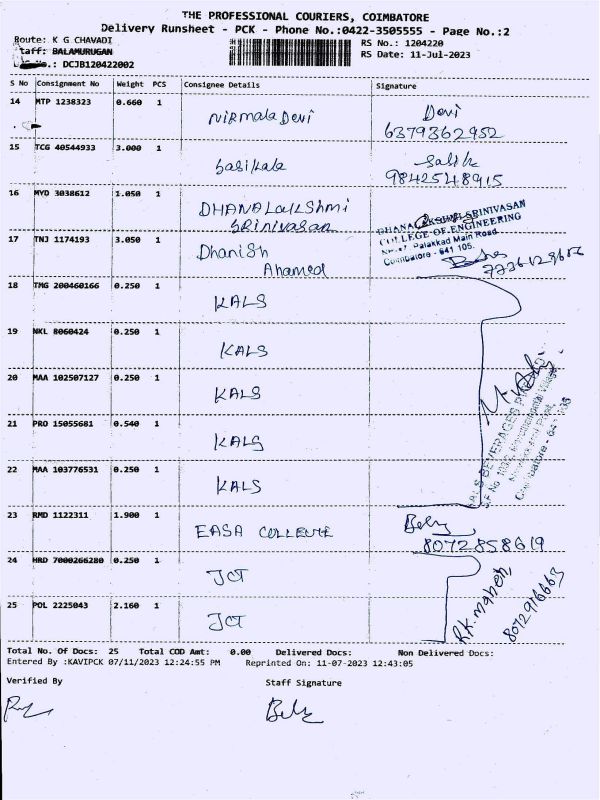 THE PROFESSIONAL COURIERS, COIMBATORE
Delivery Runsheet - PCK - Phone No.:0422-3505555 - Page No.:2
Route: K G CHAVADI
RS No.: 1204220
taff: BALAMURUGAN
RS Date: 11-Jul-2023
.: DCJB120422002
S No Consignment No Weight PCS Consignee Details Signature
14 MTP 1238323 0.660 1 Nirmala Devi Devi
6379362952
15 TCG 40544933 3.000 1 Sasikala Sasik
9842548915
16 MYD 3038612 1.050 1 DHANALAKSHMI
SRINIVASAN
DHANALAKSHMI SRINIVASAN
COLLEGE OF ENGINEERING
Palakkad Main Road
Coimbatore - 641 105.
17 TNJ 1174193 3.050 1 Dhanish
Ahamed
18 TMG 200460166 0.250 1 KALS
19 NKL 8060424 0.250 1 KALS
20 MAA 102507127 0.250 1 KALS
21 PRO 15055681 0.540 1 KALS
22 MAA 103776531 0.250 1 KALS
BEVERAGES
Coimbatore
23 RMD 1122311 1.900 1 EASA COLLEGE
8072858619
24 HRD 7000266280 0.250 1 JCT
25 POL 2225043 2.160 1 JCT
R.K. mahesh,
Total No. Of Docs: 25 Total COD Amt: 0.00 Delivered Docs: Non Delivered Docs:
Entered By :KAVIPCK 07/11/2023 12:24:55 PM Reprinted On: 11-07-2023 12:43:05
Verified By Staff Signature